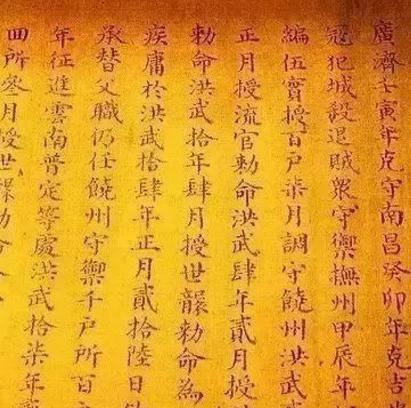 廣濟壬寅年克守南昌癸卯年克吉
冦犯城殺退賊衆守禦撫州甲辰年
編伍實授百戸柒月調守饒州洪武
正月授流官勅命洪武肆年貳月授
勅命洪武拾年肆月授世襲勅命為
疾庸於洪武拾肆年正月貳拾陸日
承替父職仍任饒州守禦千戸所百
年征進雲南普定等處洪武拾柒年
四所叁月授世襲勅命